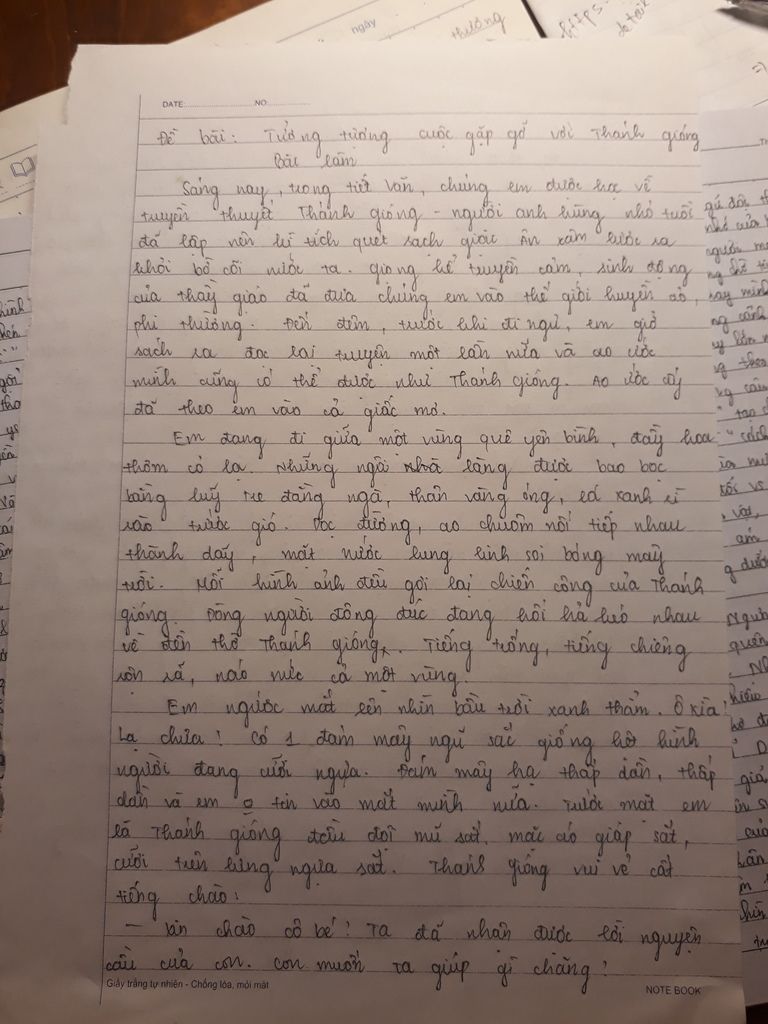 ngày
thường
DATE: NO
Đề bài: Tưởng tượng cuộc gặp gỡ với Thánh gióng
Bài làm
Sáng nay, trong tiết văn, chúng em được học về
truyền thuyết Thánh gióng - người anh hùng nhỏ tuổi
đã lập nên kì tích quét sạch giặc Ân xâm lược ra
khỏi bờ cõi nước ta. Giọng kể truyền cảm, sinh động
của thầy giáo đã đưa chúng em vào thế giới huyền ảo,
phi thường. Đến đêm, trước khi đi ngủ, em giở
sách ra đọc lại truyện một lần nữa và ao ước
mình cũng có thể được như Thánh Gióng. Ao ước ấy
đã theo em vào cả giấc mơ.
Em đang đi giữa một vùng quê yên bình, đầy hoa
thơm cỏ lạ. Những ngôi nhà làng được bao bọc
bằng luỹ tre đằng ngà, thân vàng óng, lá xanh rì
rào trước gió. Dọc đường, ao chuôm nối tiếp nhau
thành dãy, mặt nước lung linh soi bóng mây
trời. Mỗi hình ảnh đều gợi lại chiến công của Thánh
gióng. Dòng người đông đúc đang hối hả kéo nhau
về đền thờ Thánh gióng. Tiếng trống, tiếng chiêng
rộn rã, náo nức cả một vùng.
Em ngước mắt lên nhìn bầu trời xanh thẳm. Ô kìa!
Lạ chưa! Có 1 đám mây ngũ sắc giống hệt hình
người đang cưỡi ngựa. Đám mây hạ thấp dần, thấp
dần và em o tin vào mắt mình nữa. Trước mắt em
là Thánh gióng đầu đội mũ sắt, mặc áo giáp sắt,
cưỡi trên lưng ngựa sắt. Thánh gióng vui vẻ cất
tiếng chào:
- Xin chào cô bé! Ta đã nhận được lời nguyện
cầu của con. Con muốn ta giúp gì chăng?
Giấy trắng tự nhiên - Chống lóa, mỏi mắt
NOTE BOOK